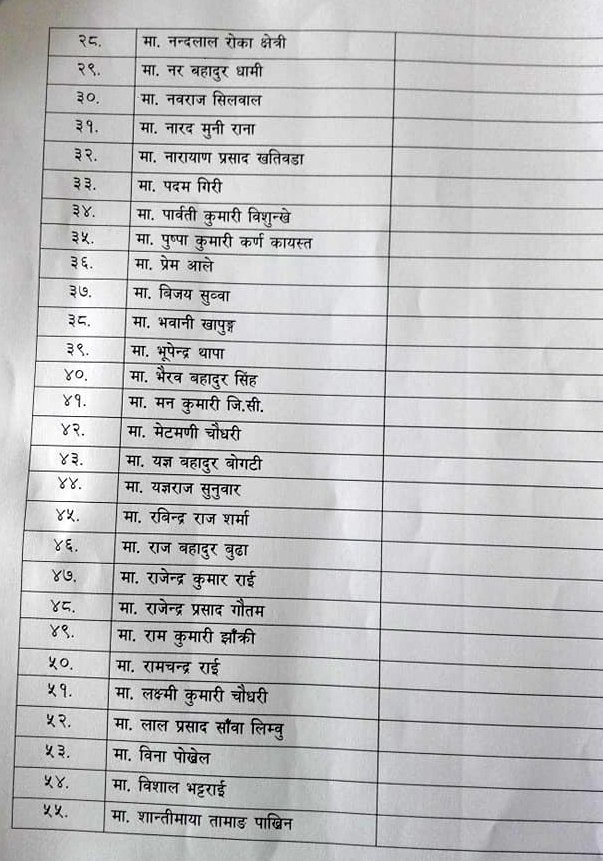 २८. मा. नन्दलाल रोका क्षेत्री
२९. मा. नर बहादुर धामी
३०. मा. नवराज सिलवाल
३१. मा. नारद मुनी राना
३२. मा. नारायाण प्रसाद खतिवडा
३३. मा. पदम गिरी
३४. मा. पार्वती कुमारी विशुन्खे
३५. मा. पुष्पा कुमारी कर्ण कायस्त
३६. मा. प्रेम आले
३७. मा. विजय सुव्वा
३८. मा. भवानी खापुङ्ग
३९. मा. भूपेन्द्र थापा
४०. मा. भैरव बहादुर सिंह
४१. मा. मन कुमारी जि.सी.
४२. मा. मेटमणी चौधरी
४३. मा. यज्ञ बहादुर बोगटी
४४. मा. यज्ञराज सुनुवार
४५. मा. रबिन्द्र राज शर्मा
४६. मा. राज बहादुर बुढा
४७. मा. राजेन्द्र कुमार राई
४८. मा. राजेन्द्र प्रसाद गौतम
४९. मा. राम कुमारी झाँक्री
५०. मा. रामचन्द्र राई
५१. मा. लक्ष्मी कुमारी चौधरी
५२. मा. लाल प्रसाद साँवा लिम्बु
५३. मा. विना पोखेल
५४. मा. विशाल भट्टराई
५५. मा. शान्तीमाया तामाङ पाख्रिन